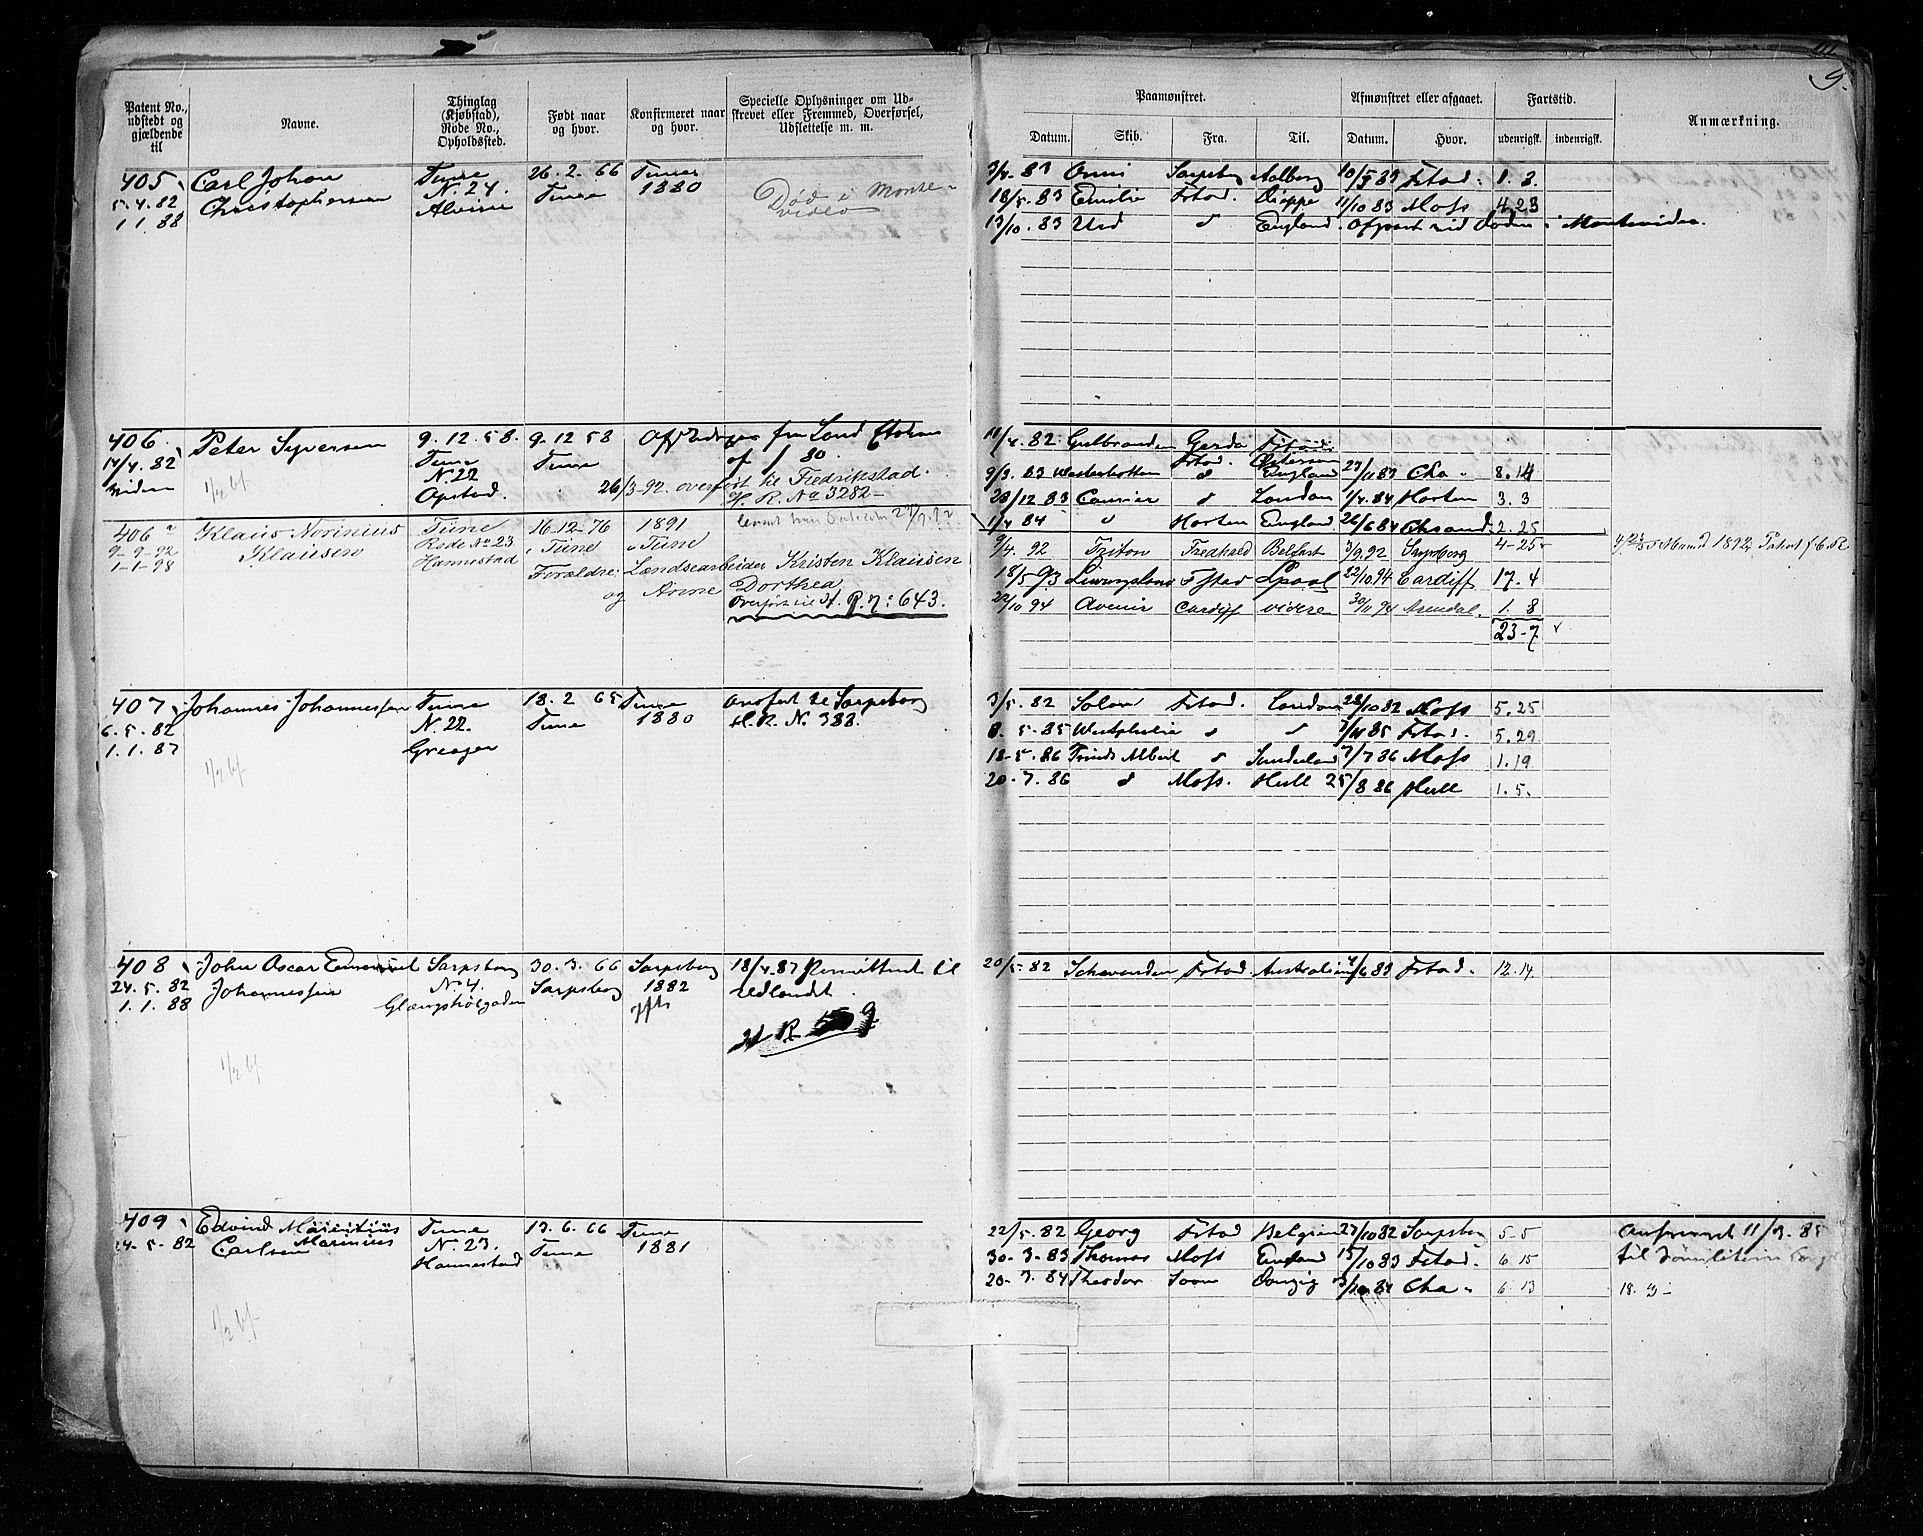 9.
Patent No., udstedt og gjældende til
Navne.
Thinglag (Kjøbstad), Rode No., Opholdssted.
Født naar og hvor.
Konfirmeret naar og hvor.
Specielle Oplysninger om Udskrevet eller Fremmed, Overførsel, Udslettelse m. m.
Paamønstret.
Afmønstret eller afgaaet.
Fartstid.
Anmærkning.
Datum. Skib. Fra. Til. Datum. Hvor. udenrigsk. indenrigsk.
405 Carl Johan Tune 26. 2. 66 Tune
5.4.82 Christophersen N. 24. Tune 1880 Død i Monte-
1.1.88 Alvim video
3/4. 83 Sarpsborg Aalborg 10/5 83 Fstad. 1. 3.
18/5. 83 Emilie Fstad. Dieppe 11/10 83 Moss 4.23
17/10. 83 Urd " England. Afgaaet ved Døden i Montevideo.
406 Peter Syversen 9. 12. 58. 9. 12 58
14/4. 82 Tune Tune
viden N. 22
Opstad. 26/3-92. overført til Fredrikstad.
H. R. No 3282-
11/4. 82. Gulbranden Gerda
9/3. 83 Westerbotten Fstad. England 27/11 83 Cha. 8. 14
28/12 83 Courier " London 1/4. 84 Horten 3. 3
1/4 84 " Horten England 26/6 84 Chrsand. 2. 25
406 a Klaus Norinius Tune 16-12-76 1891
9-9-92 Klausen Rode No 23 i Tune i Tune
1-1-98 Hannestad Forældre: Landsearbeider Kristen Klausen
og Anne Dorthea
Overført til H. R. N: 643.
9/4. 92 Triton Fredhald Belfast 3/9. 92 Sarpsborg 4-25
18/5 93 Livingsland Fstad Lpool 22/10. 94 Cardiff 17. 4
22/10 94 Avenir Cardiff videre 30/11 94 Arendal. 1. 8
23-7
407 Johannes Johannessen Tune 18. 2 65 Tune overført til Sarpsborg
6. 5. 82 N. 22. Tune 1880 H. R. N. 388.
1. 1. 87 Greager
3/5. 82 Solon Fstad. London 28/10 82 Moss 5. 25
8. 5. 85 Westphalia " " Fstad. 5. 29
18-5. 86 Prinds Albert " Sunderland 7/7 86 Moss 1. 19
20. 7. 86 " Moss. Hull 25/8 86 Hull 1. 5.
408 John Oscar Emanuel Sarpsborg 30. 3. 66 Sarpsborg 18/4. 87 Permitteret til
24. 5. 82 Johannessen No 4. Sarpsborg 1882 Udlandet.
1. 1. 88 Glængshølgaden
20/5. 82 Fstad. Australien 4/6 83 Fstad. 12. 14
409 Edvind Mauritius Tune 13. 6. 66 Tune
24. 5. 82 Carlsen Marinius N. 23. Tune 1881
Hannestad
22/5. 82 Georg Fstad Belgien 27/10 82 Sarpsborg 5. 5
30. 3. 83 Thomas Moss England 15/10 83 Fstad. 6. 15
20. 3. 84 Theodor Soon Danzig 3/10 84 Cha. 6. 13
11/3. 85